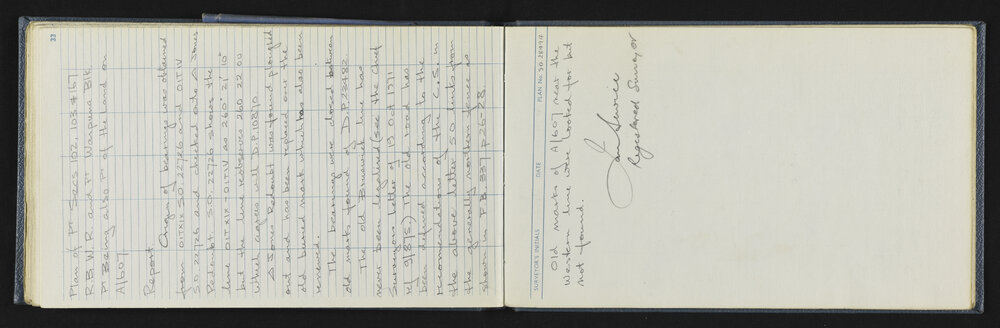 33
Plan of Pt Secs 102, 103 & 167
R.B.W.R. and Pt Waipuna Blk.
Pt Being also Pt of the land on
A/607
Report
Origin of bearings was obtained
from OIT XIX S.O. 22726 and OIT IV
S.O. 22726 and checked onto △ Jones
Redoubt. S.O. 22726 shows the
line OIT XIX - OIT IV as 260 21 10
but the line reobserves 260 22 00
which agrees with D.P. 10870
△ Jones Redoubt was found plough
out and has been replaced over the
old buried mark which has also been
renewed.
The bearings were closed between
old marks found of D.P. 23482.
The old Brunswick line has
never been legalised (see the Chief
Surveyors letter of 19 Oct 1971
ref 9/8/5). The old road has
been defined according to the
recomendations of the C.S. in
the above letter. S.O. dints shown
the generally northern fence as
shown in F.B. 337 p 26-28
SURVEYOR'S INITIALS DATE PLAN No. SO 28991
Old marks of A/607 near the
western line were looked for but
not found.
Registered Surveyor